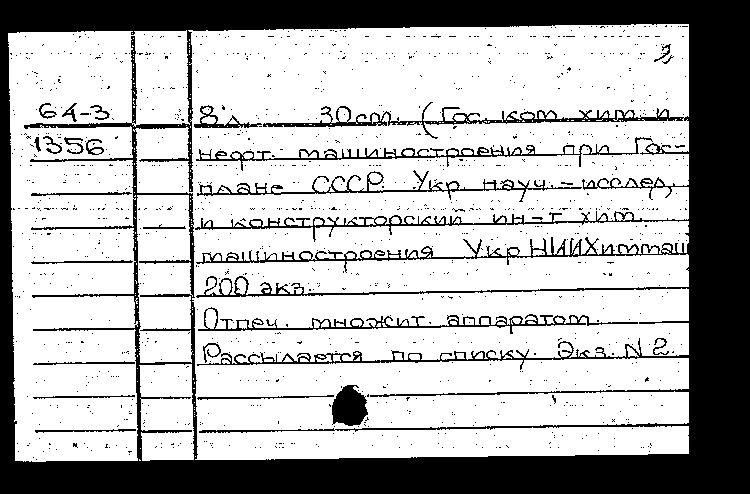 2
64-3 8 л. 30 cm. (Гос. ком. хим. и
1356 нефт. машиностроения при Гос-
плане СССР. Укр. науч.-исслед.
и конструкторский ин-т хим.
машиностроения УкрНИИХиммаш
200 экз.
Отпеч. множит. аппаратом.
Рассылается по списку. Экз. N 2.